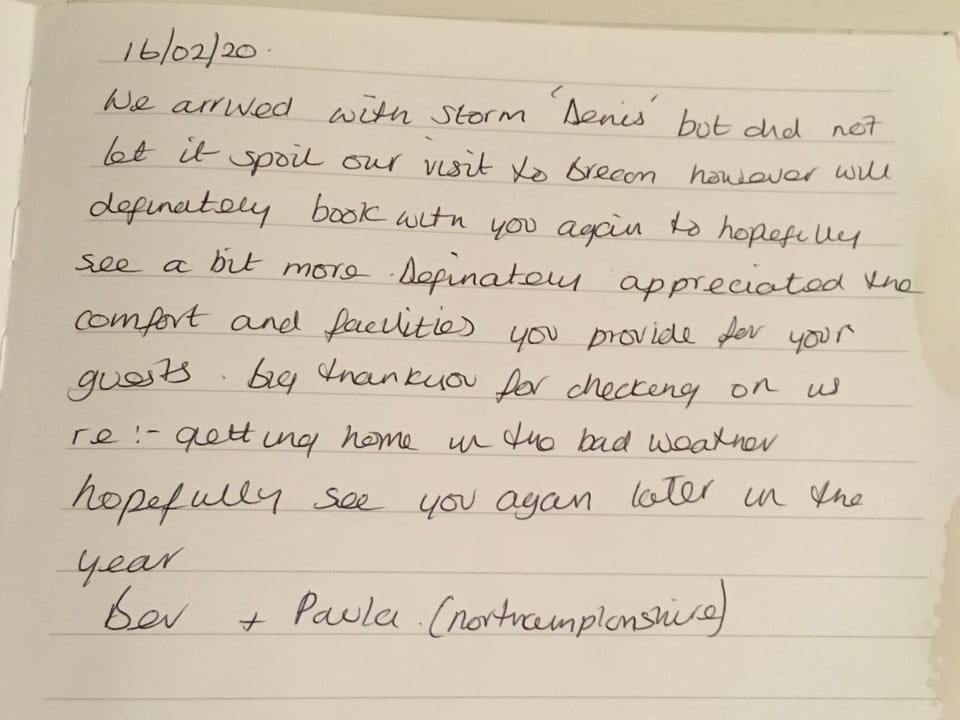 16/02/20.
We arrived with storm 'Denis' but did not
let it spoil our visit to brecon however will
definately book with you again to hopefully
see a bit more. Definately appreciated the
comfort and facilities you provide for your
guests. big thankyou for checking on us
re:- getting home in the bad weather
hopefully see you again later in the
year
Bev + Paula. (northamptonshire)